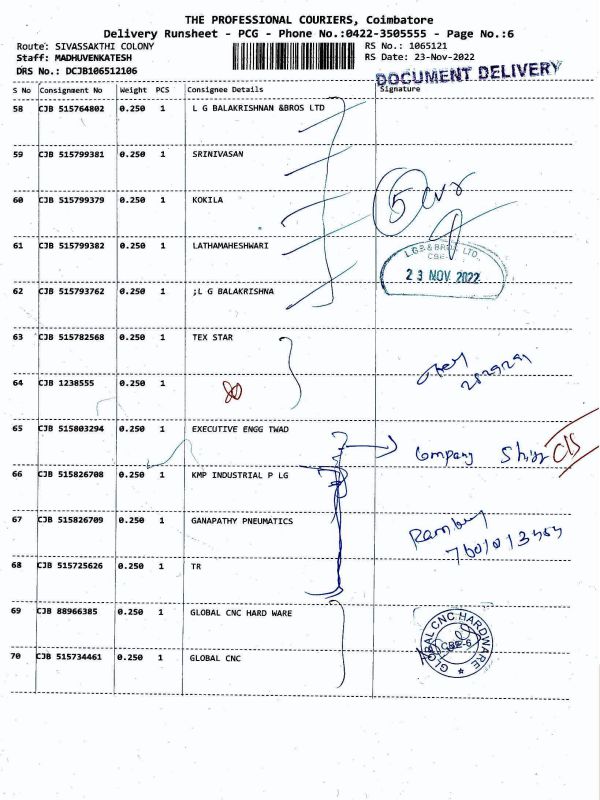 THE PROFESSIONAL COURIERS, Coimbatore
Delivery Runsheet - PCG - Phone No.:0422-3505555 - Page No.:6
Route: SIVASSAKTHI COLONY RS No.: 1065121
Staff: MADHUVENKATESH RS Date: 23-Nov-2022
DRS No.: DCJB106512106
DOCUMENT DELIVERY
S No Consignment No Weight PCS Consignee Details Signature
58 CJB 515764802 0.250 1 L G BALAKRISHNAN &BROS LTD
59 CJB 515799381 0.250 1 SRINIVASAN
60 CJB 515799379 0.250 1 KOKILA
5
61 CJB 515799382 0.250 1 LATHAMAHESHWARI
L.G.B & BROS. LTD.,
CBE-
23 NOV 2022
62 CJB 515793762 0.250 1 ;L G BALAKRISHNA
63 CJB 515782568 0.250 1 TEX STAR
64 CJB 1238555 0.250 1
65 CJB 515803294 0.250 1 EXECUTIVE ENGG TWAD
Company
66 CJB 515826708 0.250 1 KMP INDUSTRIAL P LG
67 CJB 515826709 0.250 1 GANAPATHY PNEUMATICS
68 CJB 515725626 0.250 1 TR
69 CJB 88966385 0.250 1 GLOBAL CNC HARD WARE
GLOBAL CNC HARDWARE
CBE-6
70 CJB 515734461 0.250 1 GLOBAL CNC